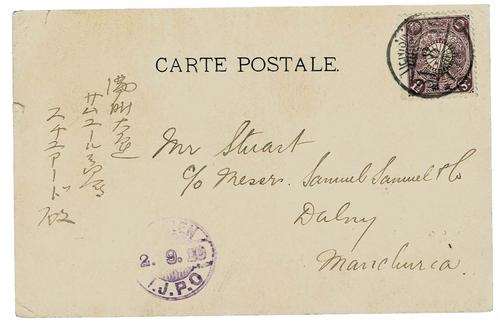 CARTE POSTALE.
満州大連
サムエル
スチユアード
Mr Stuart
c/o Messrs. Samuel Samuel & Co
Dalny
Manchuria.
2. 9.
I.J.P.O